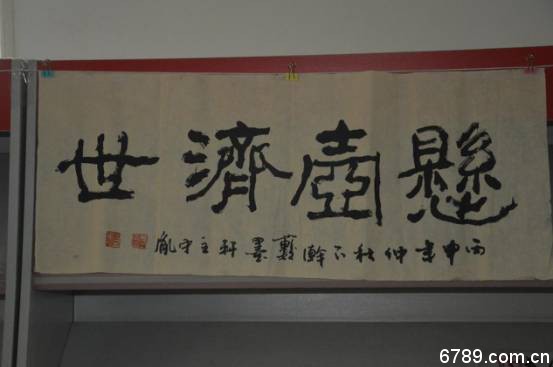 懸壺濟世
丙申年仲秋不瀚藝墨軒主守胤
6789.com.cn